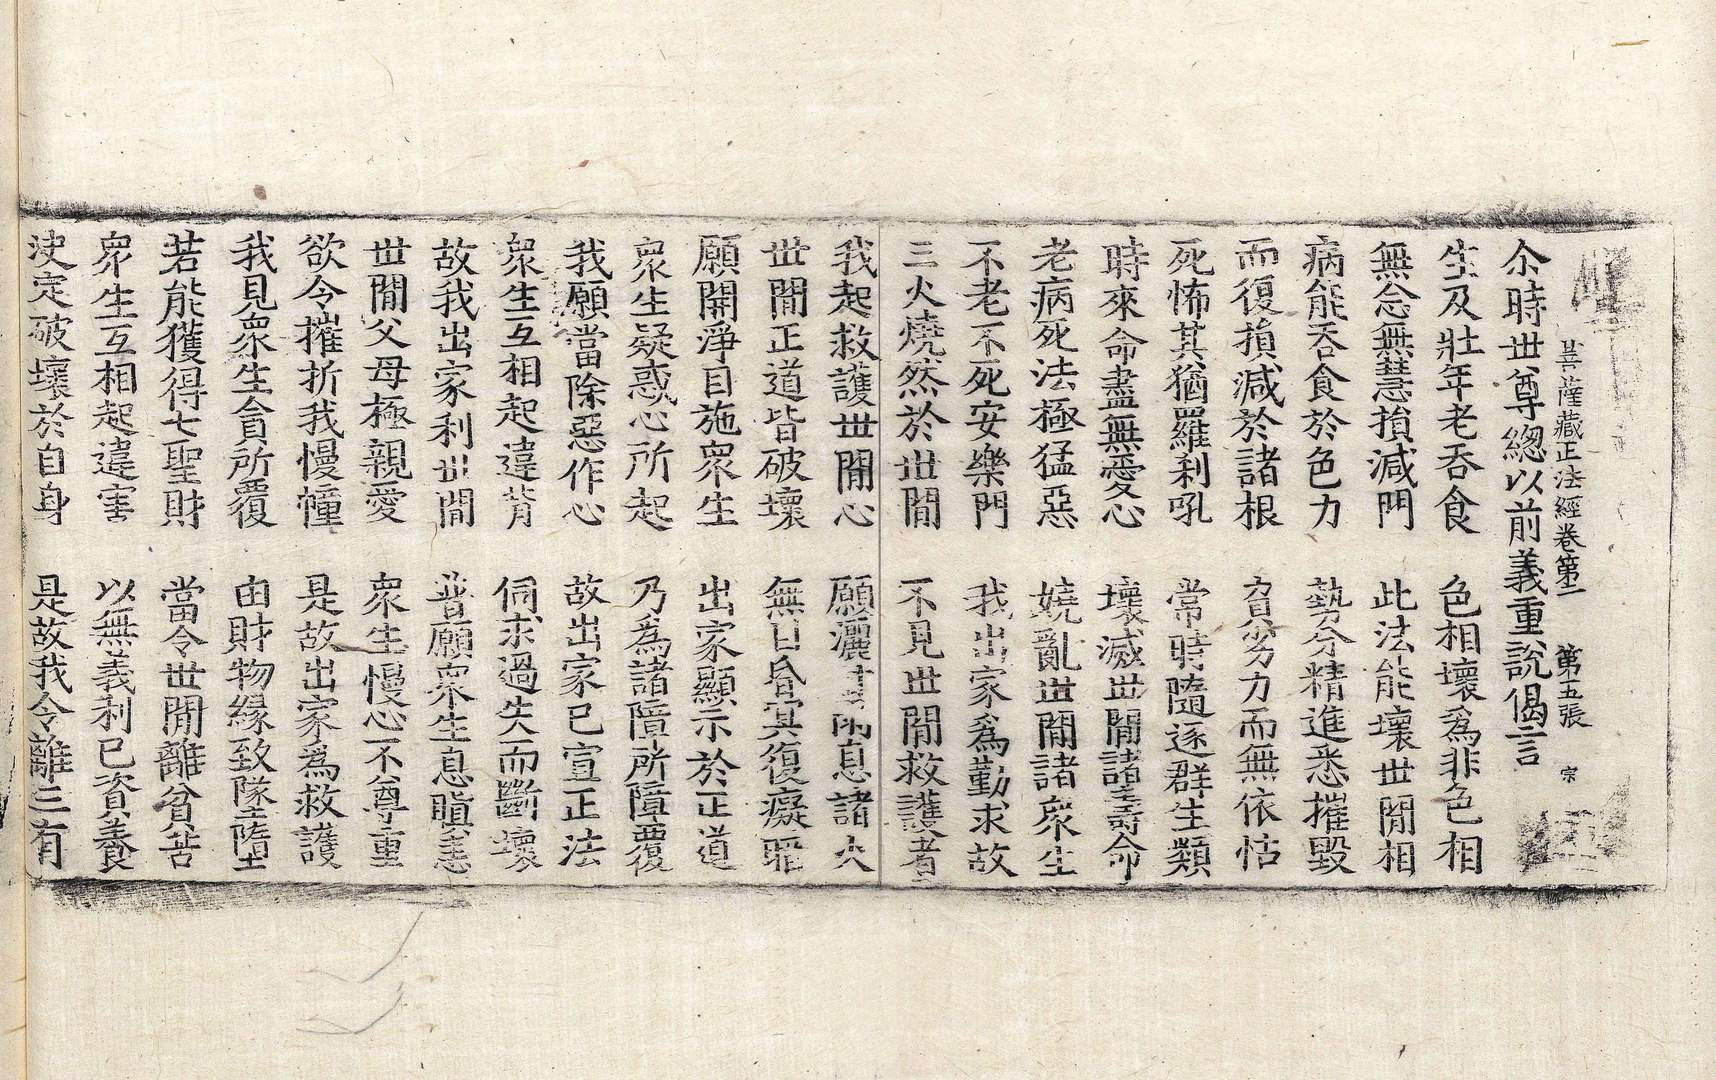 菩薩藏正法經卷第二 第五張 宗
尒時世尊緫以前義重說偈言
生及壯年老吞食 色相壞爲非色相
無念無慧損減門 此法能壞世閒相
病能吞食於色力 勢分精進悉摧毀
而復損減於諸根 貧劣力而無依怙
死怖其猶羅刹吼 常時隨逐群生類
時來命盡無愛心 壞滅世閒諸壽命
老病死法極猛惡 嬈亂世閒諸衆生
不老不死安樂門 我出家爲勤求故
三火燒然於世閒 不見世閒救護者
我起救護世閒心 願灑甘露息諸火
世閒正道皆破壞 無目昏冥復癡罪
願開淨目施衆生 出家顯示於正道
衆生疑惑心所起 乃爲諸障所障覆
我願當除惡作心 故出家已宣正法
衆生互相起違背 伺求過失而斷壞
故我出家利世閒 普願衆生息瞋恚
世閒父母極親愛 衆生慢心不尊重
欲令摧折我慢幢 是故出家爲救護
我見衆生貪所覆 由財物緣致墜墮
若能獲得七聖財 當令世閒離貧苦
衆生互相起違害 以無義利已資養
決定破壞於自身 是故我令離三有